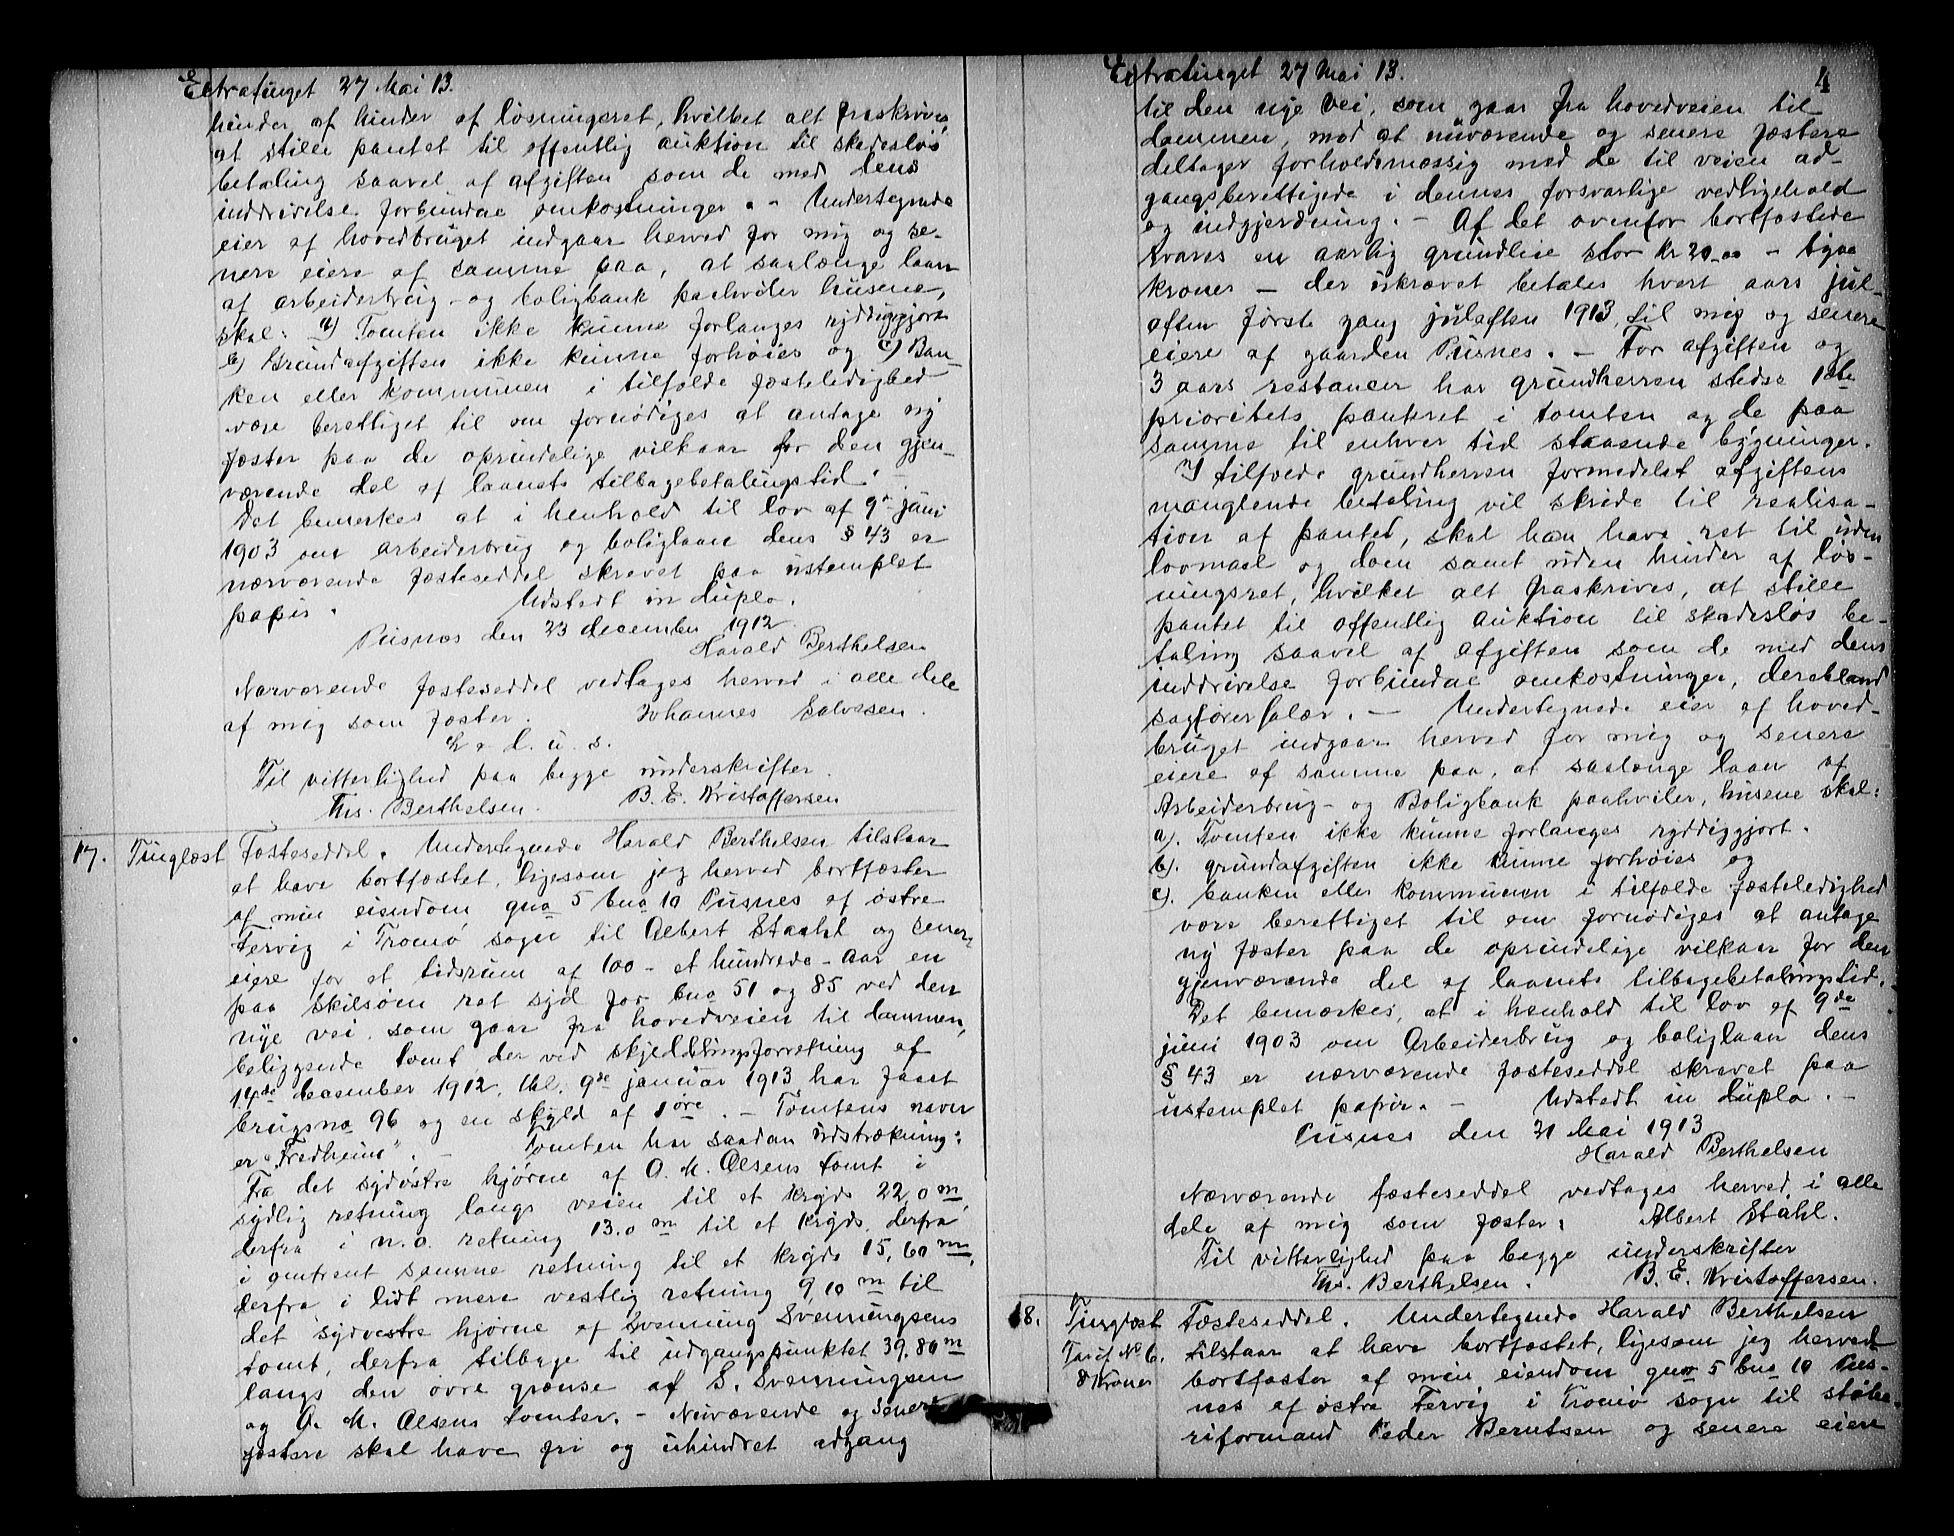 Extratinget 27 Mai 13.
hinder af hinder af løsningsret, hvilket alt fraskrives,
at stille pantet til offentlig auktion til skadesløs
betaling saavel af afgiften som de med dens
inddrivelse forbundne omkostninger. - Undertegnede
eier af hovedbruget indgaar herved for mig og se-
nere eiere af samme paa, at saalænge laan
af arbeiderbrug- og boligbank paahviler husene,
skal: a) Tomten ikke kunne forlanges ryddiggjort
b) Grundafgiften ikke kunne forhøies og c) Ban-
ken eller kommunen i tilfælde fæsteledighed
være berettiget til om fornødiges at antage ny
fæster paa de oprindelige vilkaar for den gjen-
værende del af laanets tilbagebetalingstid.
Det bemerkes at i henhold til lov af 9de juni
1903 om arbeiderbrug og boliglaan dens § 43 er
nærværende fæsteseddel skrevet paa ustemplet
papir. Udstedt in duplo.
Pusnes den 23 december 1912.
Harald Berthelsen
Nærværende fæsteseddel vedtages herved i alle dele
af mig som fæster. Johannes Salvesen.
L. d. u. s.
Til vitterlighed paa begge underskrifter.
Ths. Berthelsen. B. E. Kristoffersen
17. Tinglæst Fæsteseddel. Undertegnede Harald Berthelsen tilstaar
at have bortfæstet, ligesom jeg herved bortfæster
af min eiendom gno 5 bno 10 Pusnes af østre
Tervig i Tromø sogn til Albert Staahl og senere
eiere for et tidsrum af 100 - et hundrede - aar en
paa Skilsøen ret syd for bno 51 og 85 ved den
nye vei, som gaar fra hovedveien til dammen,
beliggende tomt der ved skjelddelingsforretning af
14de december 1912, thl. 9de januar 1913 har faaet
brugsno 96 og en skyld af 1 øre. - Tomtens navn
er "Fredheim". - Tomten har saadan udstrækning:
Fra det sydøstre hjørne af O. M. Olsens tomt i
sydlig retning langs veien til et kryds 22,0 m,
derfra i n.o. retning 13.0 m til et kryds, derfra
i omtrent samme retning til et kryds 15,60 m,
derfra i lidt mere vestlig retning 9,10 m til
det sydvestre hjørne af Svenning Svenningsens
tomt, derfra tilbage til udgangspunktet 39.80 m
langs den øvre grænse af S. Svenningsen
og O. M. Olsens tomter. - Nuværende og senere
fæstere skal have fri og uhindret adgang
Extratinget 27 Mai 13. 4
til den nye vei, som gaar fra hovedveien til
dammen, mod at nuværende og senere fæstere
deltager forholdsmæssig med de til veien ad-
gangsberettigede i dennes forsvarlige vedligehold
og indgjerdning. - Af det ovenfor bortfæstede
svares en aarlig grundleie stor kr 20.00 - tyve
kroner - der ukrævet betales hvert aars jul-
aften første gang julaften 1913, til mig og senere
eiere af gaarden Pusnes. - For afgiften og
3 aars restancer har grundherren stedse 1ste
prioritets panteret i tomten og de paa
samme til enhver tid staaende bygninger.
I tilfælde grundherren formedelst afgiftens
manglende betaling vil skride til realisa-
tion af pantet, skal han have ret til uden
lovmaal og dom samt uden hinder af løs-
ningsret, hvilket alt fraskrives, at stille
pantet til offentlig auktion til skadesløs be-
taling saavel af afgiften som de med dens
inddrivelse forbundne omkostninger, deriblandt
sagførersalær. - Undertegnede eier af hoved-
bruget indgaar herved for mig og senere
eiere af samme paa, at saalænge laan af
Arbeiderbrug- og Boligbank paahviler, husene skal:
a). Tomten ikke kunne forlanges ryddiggjort.
b). grundafgiften ikke kunne forhøies og
c). banken eller kommunen i tilfælde fæsteledighed
være berettiget til om fornødiges at antage
ny fæster paa de oprindelige vilkaar for den
gjenværende del af laanets tilbagebetalingstid. -
Det bemærkes, at i henhold til lov af 9de
juni 1903 om Arbeiderbrug og boliglaan dens
§ 43 er nærværende fæsteseddel skrevet paa
ustemplet papir. - Udstedt in duplo. -
Pusnes den 21 Mai 1913
Harald Berthelsen
Nærværende fæsteseddel vedtages herved i alle
dele af mig som fæster. Albert Stahl.
Til vitterlighed paa begge underskrifter
Ths. Berthelsen. B. E. Kristoffersen.
18. Tinglæst Fæsteseddel. Undertegnede Harald Berthelsen
Tarif No 6. tilstaar at have bortfæstet, ligesom jeg herved
8 Kroner bortfæster af min eiendom gno 5 bno 10 Pus-
nes af østre Tervig i Tromø sogn til støbe-
riformand Peder Berntsen og senere eiere